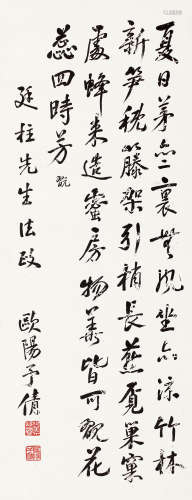 夏日茅亭裏無風坐亦涼竹林
新筍穊籐架引梢長燕覓巢窠
處蜂來造蜜房物華皆可觀花
蕊四時芳 翫
廷柱先生法政
歐陽予倩